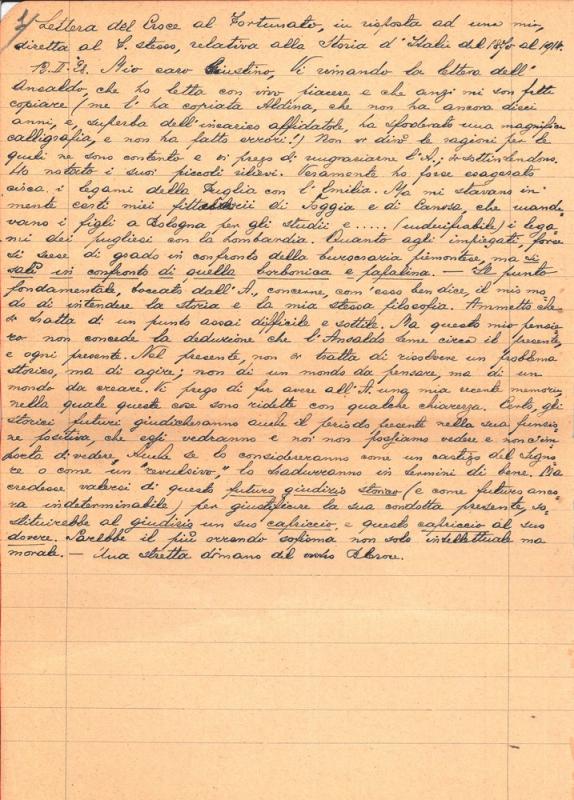 Lettera del Croce al Fortunato, in risposta ad una mia,
diretta al F. stesso, relativa alla Storia d'Italia dal 1870 al 1914.
Mio caro Giustino, Vi rimando la lettera dell'
Ansaldo, che ho letta con vivo piacere e che anzi mi son fatta
copiare (me l'ha copiata Aldina, che non ha ancora dieci
anni, e, superba dell'incarico affidatole, ha sfoderato una magnifica
calligrafia, e non ha fatto errori!) Non vi dirò le ragioni per le
quali ne sono contento e vi prego di ringraziarne l'A.; si sottintendono.
Ho notato i suoi piccoli rilievi. Veramente ho forse esagerato
circa i legami della Puglia con l'Emilia. Ma mi stavano in
mente certi miei fittabili di Foggia e di Canosa, che manda-
vano i figli a Bologna per gli studii e ..... (indecifrabile) i lega-
mi dei pugliesi con la Lombardia. Quanto agli impiegati, forse
si scese di grado in confronto della burocrazia piemontese, ma si
salì in confronto di quella borbonica e papalina. — Il punto
fondamentale, toccato dall'A., concerne, com'esso ben dice, il mio mo-
do di intendere la storia e la mia stessa filosofia. Ammetto che
si tratta di un punto assai difficile e sottile. Ma questo mio pensie-
ro non concede la deduzione che l'Ansaldo teme circa il presente,
e ogni presente. Nel presente, non si tratta di risolvere un problema
storico, ma di agire; non di un mondo da pensare, ma di un
mondo da creare. Vi prego di far avere all'A. una mia recente memoria,
nella quale queste cose son ridette con qualche chiarezza. Certo, gli
storici futuri giudicheranno anche il periodo presente nella sua funzio-
ne positiva, che essi vedranno e noi non possiamo vedere e non c'im-
porta di vedere. Anche se lo considereranno come un castigo del Signo-
re o come un "revulsivo", lo tradurranno in termini di bene. Ma
credesse valersi di questo futuro giudizio storico (e come futuro anco-
ra indeterminabile) per giustificare la sua condotta presente, so-
stituirebbe al giudizio un suo capriccio, e questo capriccio al suo
dovere. Sarebbe il più orrendo sofisma non solo intellettuale ma
morale. — Una stretta di mano del vostro B. Croce.